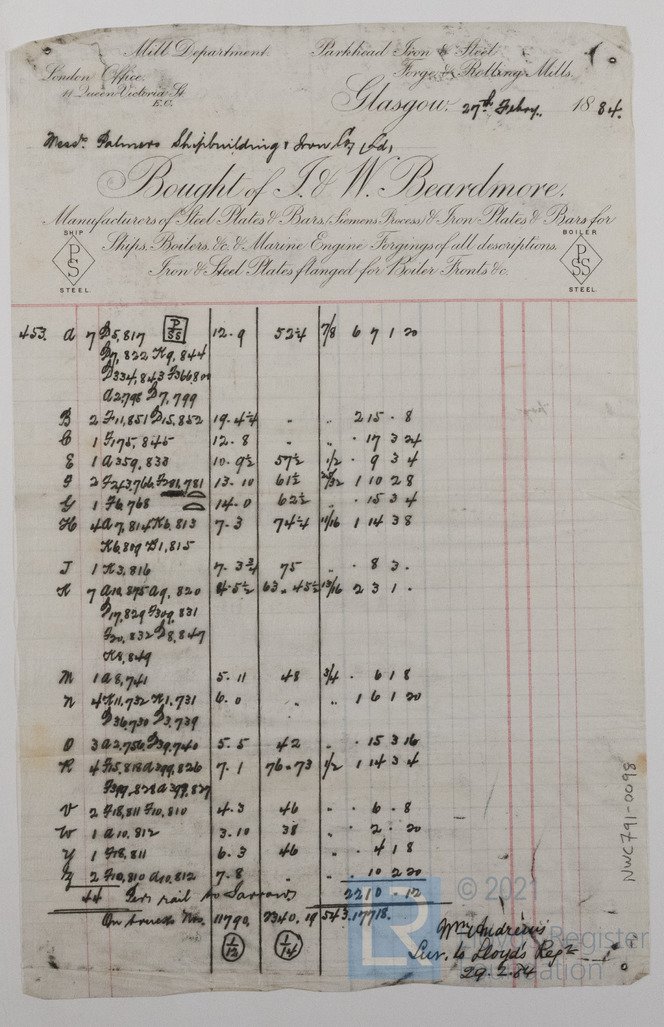 Mill Department. Parkhead Iron & Steel
London Office. Forge & Rolling Mills.
11 Queen Victoria St.
E.C.
Glasgow. 27th Febry. 1884.
Messrs Palmers Shipbuilding & Iron Coy Ld,
Bought of I. & W. Beardmore.
Manufacturers of Steel Plates & Bars (Siemens Process) & Iron Plates & Bars for
Ships, Boilers, &c. & Marine Engine Forgings of all descriptions.
Iron & Steel Plates flanged for Boiler Fronts &c.
SHIP
P
S
STEEL
BOILER
P
SS
STEEL
453. A 7 D5,817 P SS 12-9 52 1/4 7/8 6 7 1 20
D7,822 K9,844
D334,843 F366800
A2,798 D7,799
B 2 F11,851 D15,852 19-4 " " 2 15 - 8
C 1 F175,845 12-8 " " - 17 3 24
E 1 A359,833 10-9 1/2 57 1/2 1/2 - 9 3 4
F 2 F243,766, 781 13-10 61 1/2 1 10 2 8
G 1 F6,768 14-0 62 1/2 " - 15 3 4
H 4 A7,814 K6,813 7-3 74 1/4 11/16 1 14 3 8
K6,809 B1,815
J 1 K3,816 7-3 3/4 75 " - 8 3 -
K 7 A9,820 63-45 1/2 13/16 2 3 1 -
D17,829 F309,831
F20,832 D8,847
K8,849
M 1 A8,741 5-11 48 3/4 - 6 1 8
N 4 K11,732 K1,731 6-0 " " 1 6 1 20
D36,730 D3,739
O 3 A2,756 D39,740 5-5 42 " - 15 3 16
R 4 F15,818 A399,826 7-1 76-73 1/2 1 14 3 4
F399,828 A399,827
V 2 F18,811 F10,810 4-3 46 " - 6 - 8
W 1 A10,812 3-10 38 " - 2 - 20
Y 1 F18,811 6-3 46 " - 4 1 8
Z 2 F10,810 A10,812 7-8 " " - 10 2 20
44 Per rail to Jarrow 22 10 - 12
On trucks Nos. 11790, 2340, 19543, 17718.
1/12 1/14
Wm Andrews
Sur. to Lloyds Regr
29.2.84
NWC791-0098
© 2021
LR
Lloyd's Register
Foundation